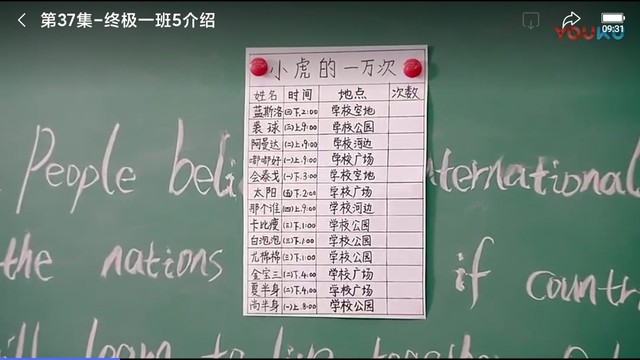 第37集-终极一班5介绍
09:31
YOUKU
小虎的一万次
姓名 时间 地点 次数
蓝斯洛 (四)下2:00 学校空地
裘球 (二)上9:00 学校公园
阿曼达 (二)上9:00 学校河边
嘟嘟好 (一)上9:00 学校广场
会泰戈 (一)下3:00 学校空地
太阳 (五)下2:00 学校广场
那个谁 (四)上9:00 学校河边
卡比度 (三)下1:00 学校公园
白泡泡 (三)下1:00 学校公园
尤棉棉 (三)下1:00 学校公园
金宝三 (二)下4:00 学校广场
夏半身 (二)下4:00 学校广场
尚半身 (一)上8:00 学校公园
People
ternational
the nations if countr
learn to live together